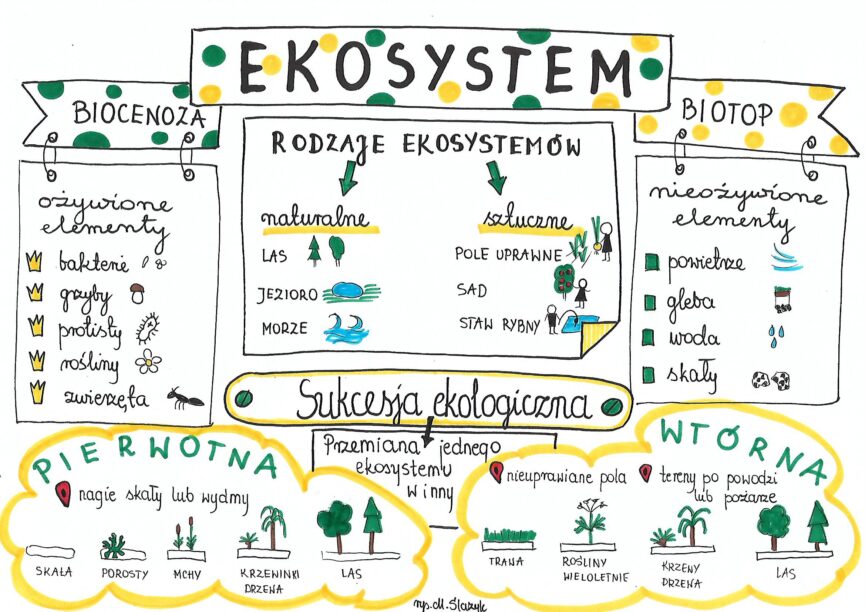 EKOSYSTEM
BIOCENOZA
ożywione
elementy
bakterie
grzyby
protisty
rośliny
zwierzęta
RODZAJE EKOSYSTEMÓW
naturalne
LAS
JEZIORO
MORZE
sztuczne
POLE UPRAWNE
SAD
STAW RYBNY
BIOTOP
nieożywione
elementy
powietrze
gleba
woda
skały
Sukcesja ekologiczna
Przemiana jednego
ekosystemu
w inny
PIERWOTNA
nagie skały lub wydmy
SKAŁA
POROSTY
MCHY
KRZEWINKI
DRZEWA
LAS
WTÓRNA
nieuprawiane pola
tereny po powodzi
lub pożarze
TRAWA
ROŚLINY
WIELOLETNIE
KRZEWY
DRZEWA
LAS